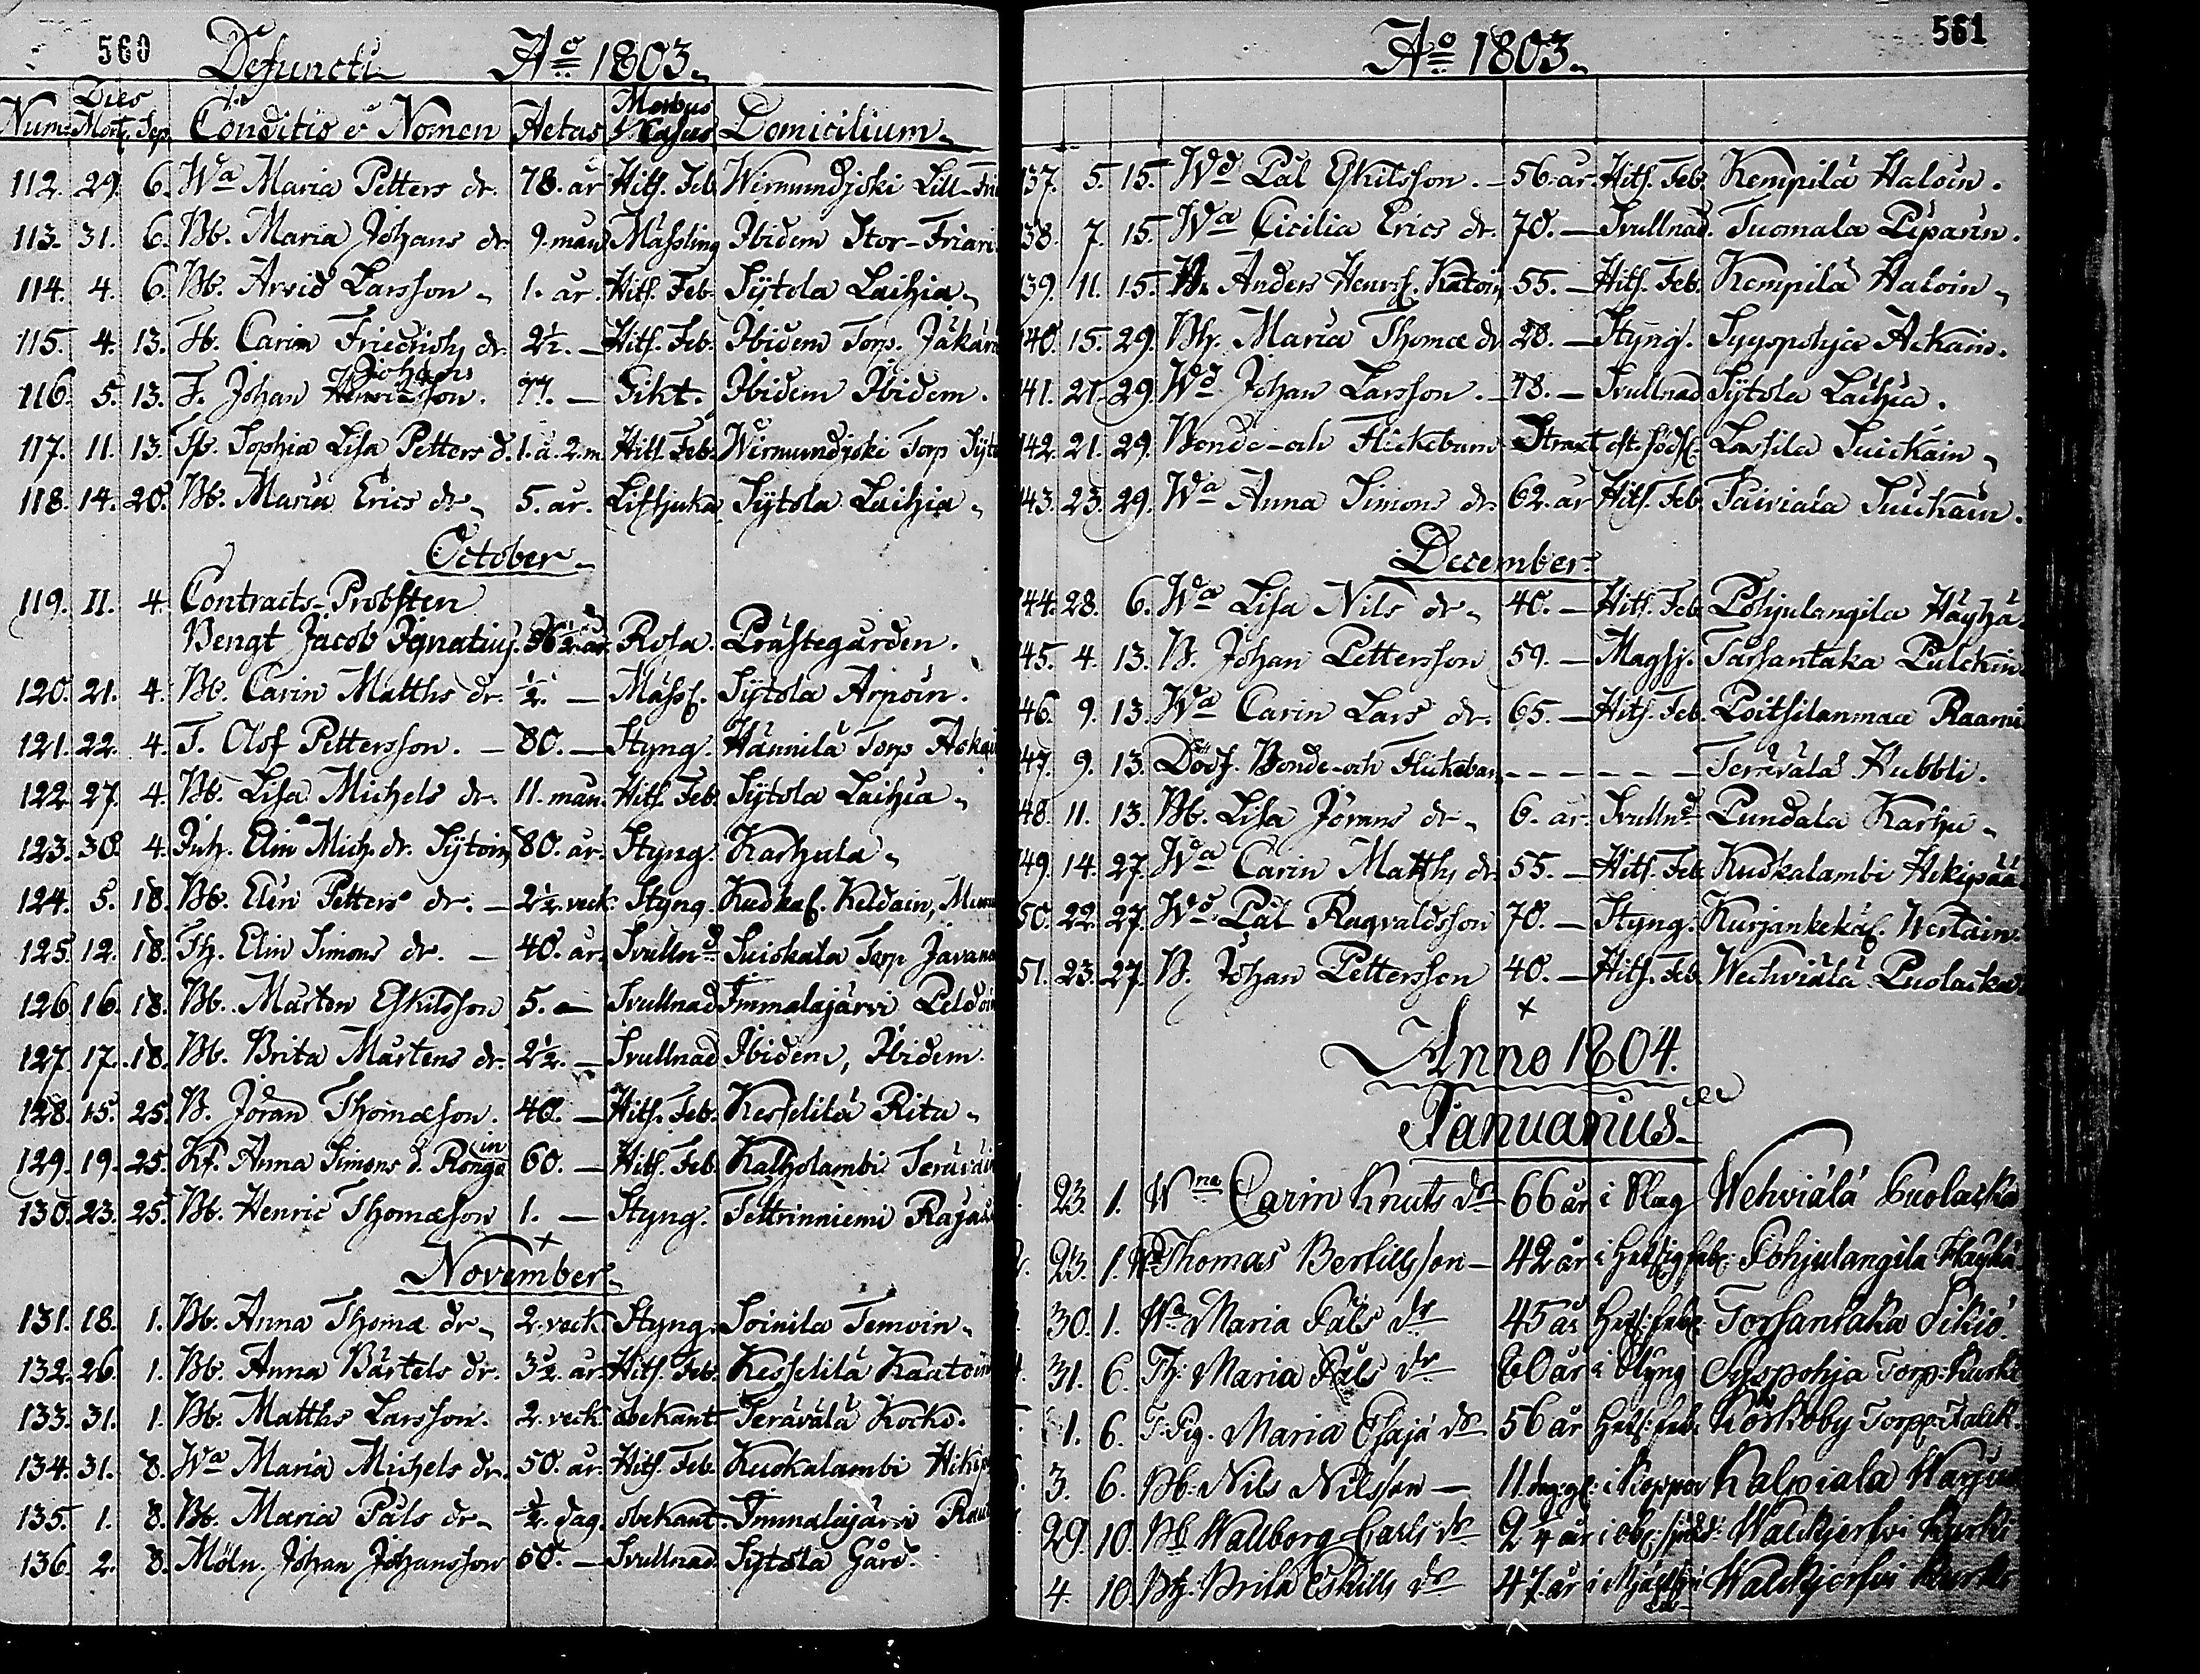 560 Defuncti Aº 1803.
Num: Dies Mort. Sep. Conditio & Nomen Aetas Morbus Casus Domicilium
112. 29. 6. Wa Maria Petters dr. 78. år Hits. Feb. Wirmundjoki Lill-
113. 31. 6. Bb. Maria Johans dr. 9. mån Mässling Ibidem Stor-
114. 4. 6. Bb. Arvid Larsson 1. år. Hits. Feb. Sÿtola Laihia
115. 4. 13. Carin Friedrichs dr. 2½. — Hits. Feb. Ibidem Torp.
116. 5. 13. F. Johan Johansson. 77. — Gikt. Ibidem Ibidem.
117. 11. 13. Sophia Lisa Petters d. 1. å. 2. m. Hits. Feb. Wirmundjoki Torp
118. 14. 20. Bb. Maria Erics dr 5. år. Sÿtola Laihia
October
119. 11. 4. Contracts-Probsten
Bengt Jacob Ignatius. Rosa. Prästegården.
120. 21. 4. Bb. Carin Matths dr. ½. — Mässl. Sÿtola Arpoin.
121. 22. 4. T. Olof Pettersson. — 80. — Styng. Hännilä Torp
122. 27. 4. Bb. Lisa Michels dr. 11. mån. Hits. Feb. Sÿtola Laihia
123. 30. 4. Inh. Elin Mich. dr. Sÿtoin 80. år. Styng. Karhula
124. 5. 18. Bb. Elin Petters dr. — 2½. veck. Styng.
125. 12. 18. Th. Elin Simons dr. — 40. år. Svulln.d Suiskala Torp
126. 16. 18. Bb. Mårten Eskilsson 5. — Svullnad Immalajärvi
127. 17. 18. Bb. Brita Mårtens dr. 2½. — Svullnad Ibidem, Ibidem.
128. 15. 25. B. Jöran Thomæson. 40. — Hits. Feb. Kesselilä Ritu
129. 19. 25. Kf. Anna Simons d. Rongain 60. — Hits. Feb. Kalholambi
130. 23. 25. Bb. Henric Thomæson 1. — Styng. Tettrinniemi
November
131. 18. 1. Bb. Anna Thomæ dr 2. veck. Styng. Soinila Temoin
132. 26. 1. Bb. Anna Bärtels dr. 3½. år. Hits. Feb. Kesselilä
133. 31. 1. Bb. Matths Larsson. 2. veck. obekant Terävälä Kocko.
134. 31. 8. Wa Maria Michels dr. 50. år. Hits. Feb. Kuokalambi
135. 1. 8. Bb. Maria Påls dr ½. dag. obekant. Immalajärvi
136. 2. 8. Möln. Johan Johansson 50. — Svullnad Sÿtola Gård.
Aº 1803. 561
137. 5. 15. Wd Pål Eskilsson. — 56. år. Hits. Feb. Kempilä Haloin.
138. 7. 15. Wa Cicilia Erics dr. 70. — Svullnad. Tuomala Piparin.
139. 11. 15. Anders Henrs. Katoin 55. — Hits. Feb. Kempilä Haloin
140. 15. 29. Bh. Maria Thomæ dr 28. — Styng. Syyspohja Ackain.
141. 21. 29. Wd Johan Larsson. — 78. — Svullnad Sÿtola Laihia.
142. 21. 29. Bonde-och Flickebarn Straxt eft. föds. Lassila Suickain
143. 23. 29. Wa Anna Simons dr. 62. år Hits. Feb. Suickain.
December.
144. 28. 6. Wa Lisa Nils dr 40. — Hits. Feb. Pohjulangila
145. 4. 13. B. Johan Pettersson 59. — Magsj. Torsantaka
146. 9. 13. Wa Carin Lars dr. 65. — Hits. Feb. Poitsilanmaa
147. 9. 13. Dödf. Bonde-och Flickebarn — — — — — — Terävälä Hubbli.
148. 11. 13. Bb. Lisa Jörans dr 6. år. Svulln.d Pundala Karhu
149. 14. 27. Wa Carin Matths dr. 55. — Hits. Feb. Kuokalambi
150. 22. 27. Wd Pål Ragvaldsson 70. — Styng.
151. 23. 27. B. Johan Pettersson 40. — Hits. Feb. Wechviälä
Anno 1804.
Januarius
23. 1. Wna Carin Knuts dr 66 år i Slag Wehviälä
23. 1. Wd Thomas Bertillsson — 42 år Pohjulangila
30. 1. Wa Maria Påls dr 45 år Torsantaka
31. 6. Th: Maria Påls dr 60 år i Styng Syspohja Torp:
1. 6. Maria Esaja dr 56 år Korkoby Torp:
3. 6. Bb: Nils Nilsson — i Koppor
29. 10. Bb Wallborg Carls dr 2 ¼ år Walckjerfvi
4. 10. Brita Eskills dr 47 år Walckjerfvi